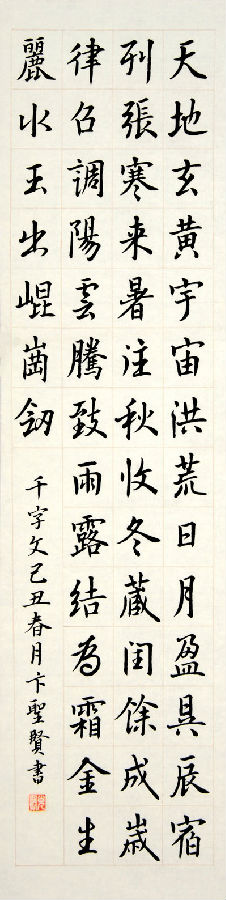 天地玄黃宇宙洪荒日月盈昃辰宿
列張寒来暑注秋收冬藏閏餘成歲
律召調陽雲騰致雨露結為霜金生
麗水玉出崐崗釼
千字文己丑春月卞聖賢書